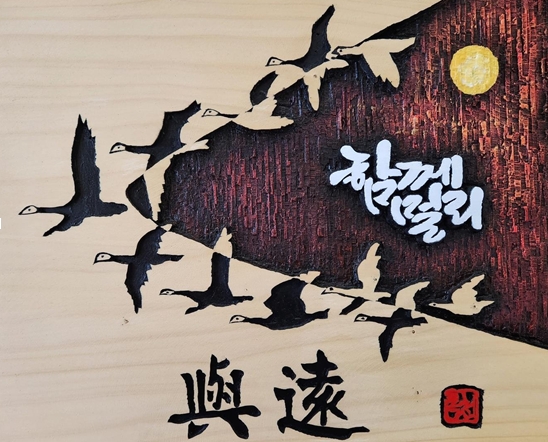 함께
멀리
與遠